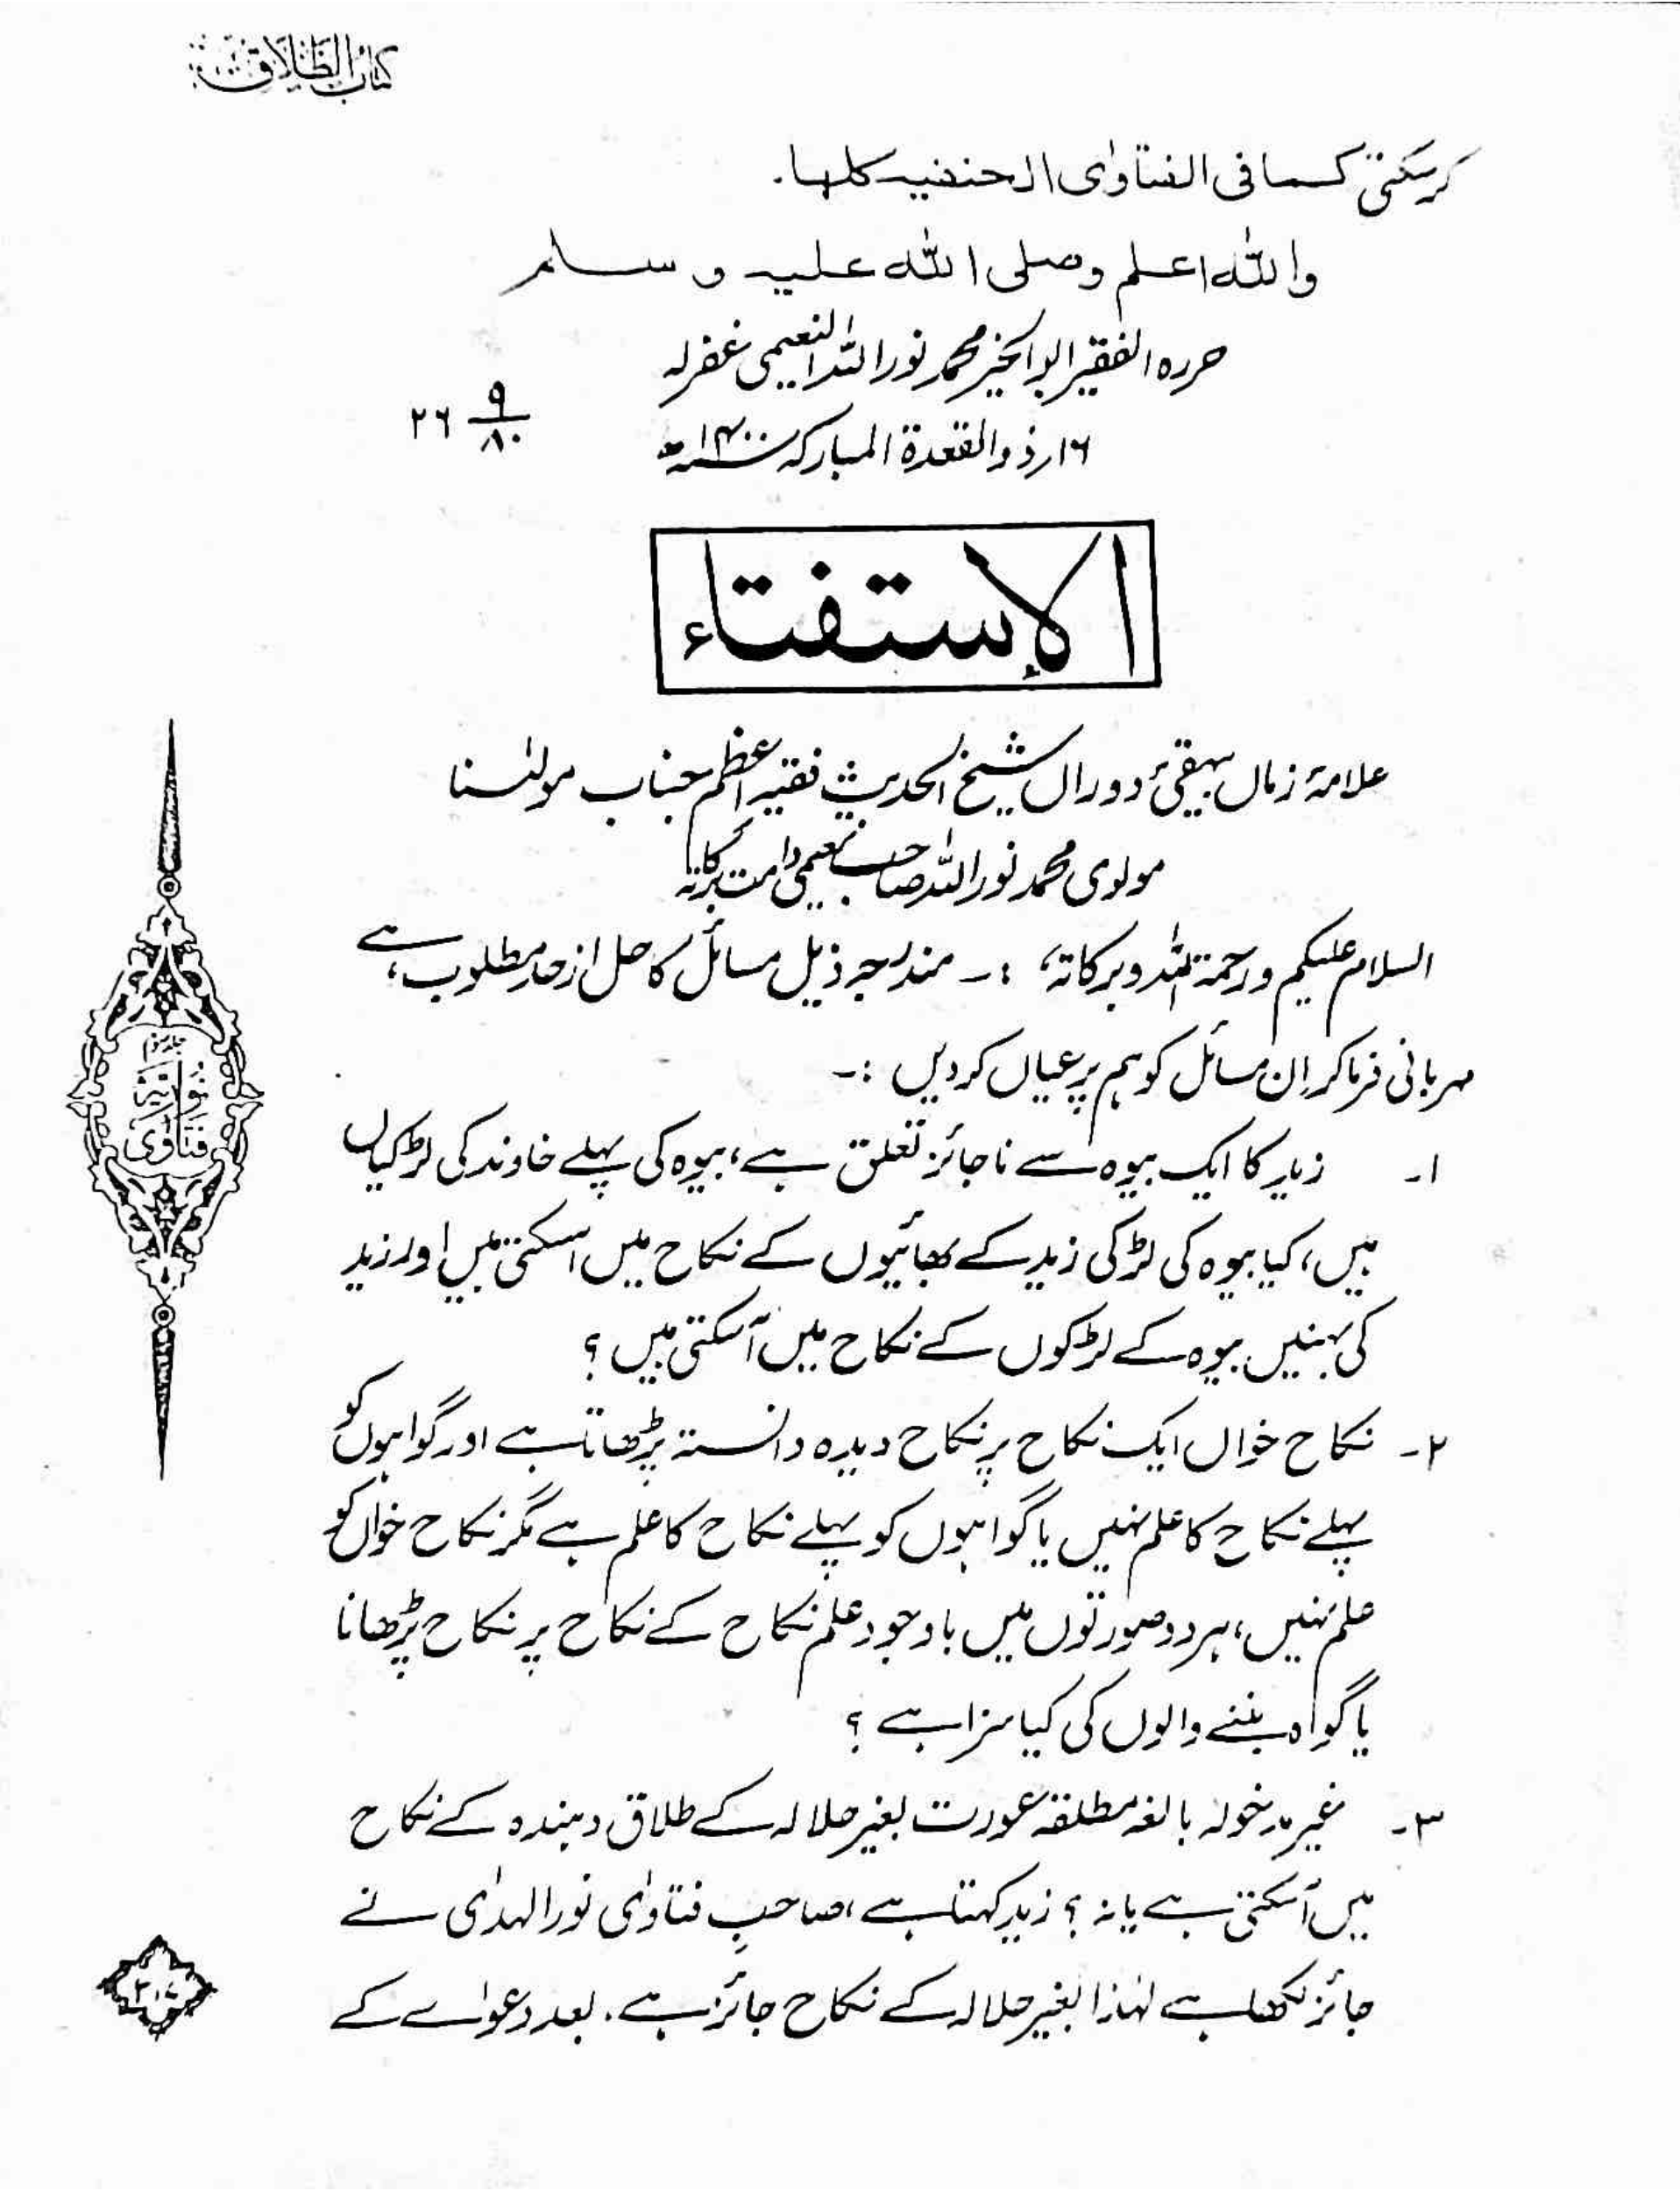 کتاب الطلاق
کرسکتی کما فی الفتاوٰی الحنفیہ کلہا۔
واللہ اعلم وصلی اللہ علیہ وسلم
حررہ الفقیر ابوالخیر محمد نور اللہ النعیمی غفرلہ
۱۶؍ذوالقعدۃ المبارکہ ۱۴۰۰ھ
۲۶ ۹/۸۰
الاستفتاء
علامۂ زماں بیہقیٔ دوراں شیخ الحدیث فقیہ اعظم جناب مولٰنا
مولوی محمد نور اللہ صاحب نعیمی دامت برکاتہ
السلام علیکم ورحمۃ اللہ وبرکاتہ، :۔ مندرجہ ذیل مسائل کا حل از حد مطلوب ہے،
مہربانی فرما کر ان مسائل کو ہم پر عیاں کردیں :۔
۱۔ زید کا ایک بیوہ سے ناجائز تعلق ہے، بیوہ کی پہلے خاوند کی لڑکیاں
ہیں، کیا بیوہ کی لڑکی زید کے بھائیوں کے نکاح میں آسکتی ہیں اور زید
کی بہنیں بیوہ کے لڑکوں کے نکاح میں آسکتی ہیں ؟
۲۔ نکاح خواں ایک نکاح پر نکاح دیدہ دانستہ پڑھاتا ہے اور گواہوں کو
پہلے نکاح کا علم نہیں یا گواہوں کو پہلے نکاح کا علم ہے مگر نکاح خواں کو
علم نہیں، ہر دو صورتوں میں باوجود علم نکاح کے نکاح پر نکاح پڑھانا
یا گواہ بننے والوں کی کیا سزا ہے ؟
۳۔ غیر مدخولہ بالغہ مطلقہ عورت بغیر حلالہ کے طلاق دہندہ کے نکاح
میں آسکتی ہے یا نہ ؟ زید کہتا ہے، صاحبِ فتاوٰی نورالہدٰی نے
جائز لکھا ہے لہٰذا بغیر حلالہ کے نکاح جائز ہے۔ بعد دعوٰے کے
جلد سوم
فتاوٰی نوریہ